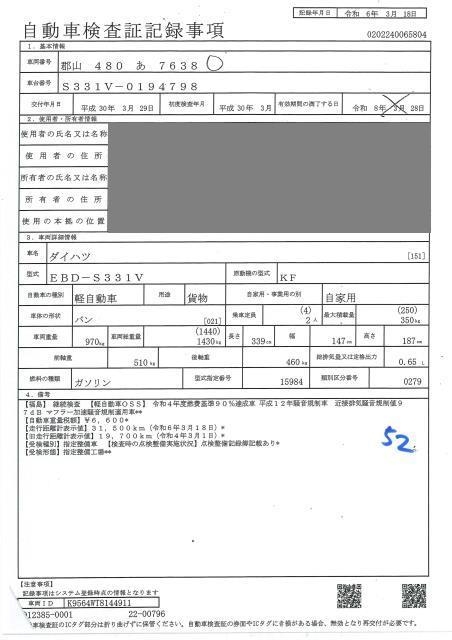 記録年月日 令和 6年 3月 18日
自動車検査証記録事項 0202240065804
1. 基本情報
車両番号 郡山 480 あ 7638
車台番号 S331V-0194798
交付年月日 平成 30年 3月 29日 初度検査年月 平成 30年 3月 有効期間の満了する日 令和 8年 3月 28日
2. 使用者・所有者情報
使用者の氏名又は名称
使用者の住所
所有者の氏名又は名称
所有者の住所
使用の本拠の位置
3. 車両詳細情報
車名 ダイハツ [151]
型式 EBD-S331V 原動機の型式 KF
自動車の種別 軽自動車 用途 貨物 自家用・事業用の別 自家用
車体の形状 バン [021] 乗車定員 (4) 2人 最大積載量 (250) 350kg
車両重量 970kg 車両総重量 (1440) 1430kg 長さ 339cm 幅 147cm 高さ 187cm
前軸重 510kg 後軸重 460kg 総排気量又は定格出力 0.65 L
燃料の種類 ガソリン 型式指定番号 15984 類別区分番号 0279
4. 備考
【福島】 継続検査 【軽自動車OSS】 令和4年度燃費基準90%達成車 平成12年騒音規制車 近接排気騒音規制値9
7dB マフラー加速騒音規制適用車**
【自動車重量税額】¥6,600*
【走行距離計表示値】31,500km(令和6年3月18日)*
【旧走行距離計表示値】19,700km(令和4年3月1日)*
【受検種別】指定整備車 【検査時の点検整備実施状況】点検整備記録簿記載あり*
【受検形態】指定整備工場**
52
【注意事項】
記録事項はシステム登録時点の情報となります
車両ID K9564WT8144911
012385-0001 22-00796
車検査証のICタグ部分は折り曲げずに保管ください。自動車検査証の券面やICタグにき損がある場合、無効となり再交付が必要です。